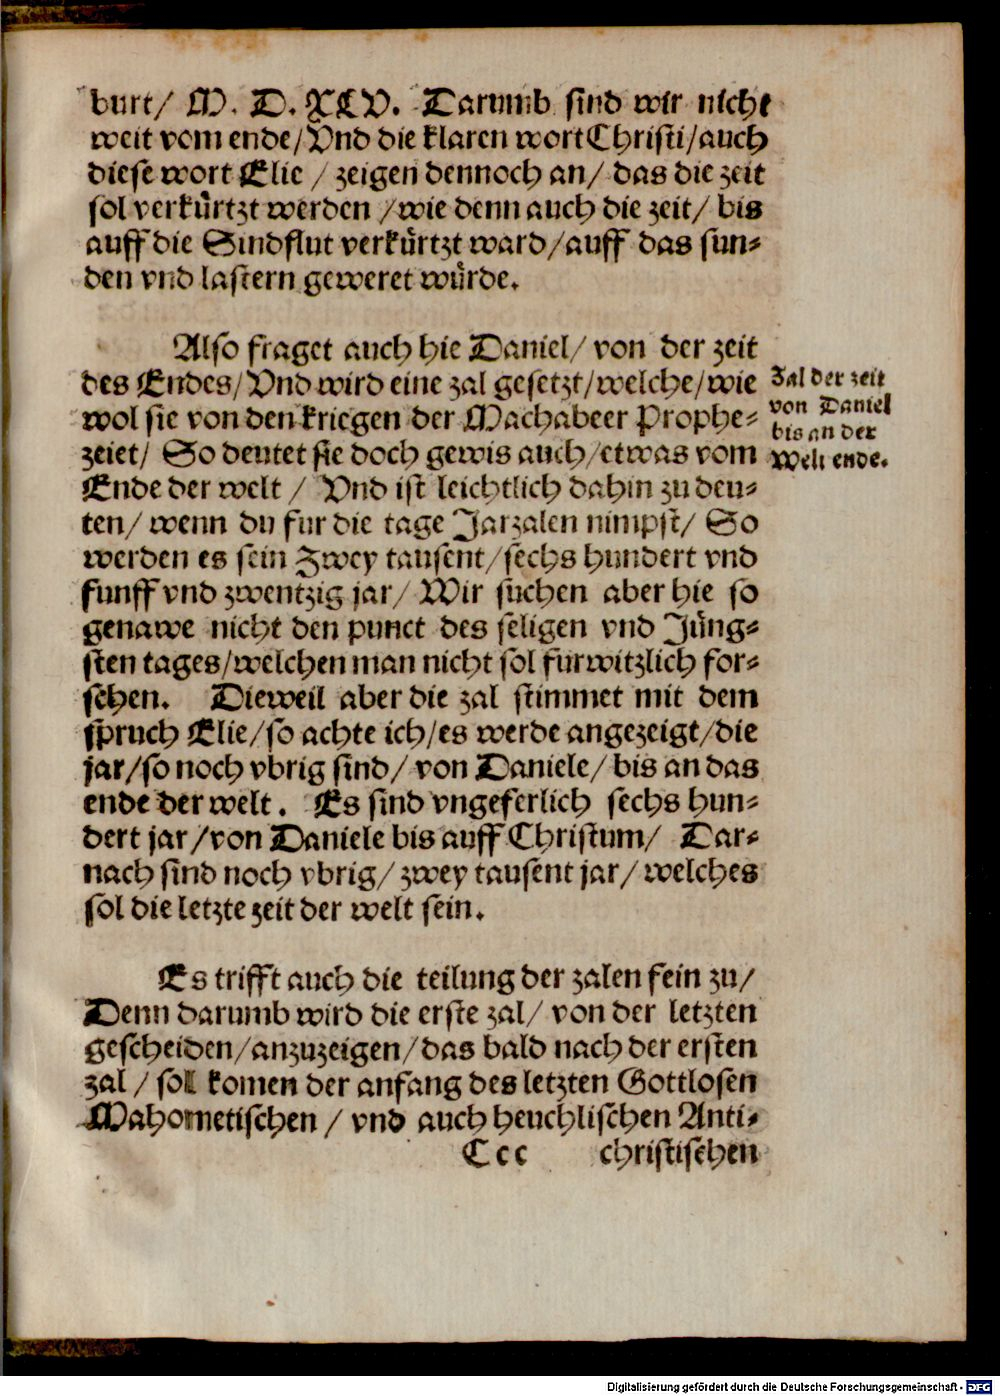 burt/ M. D. XLV. Darumb sind wir nicht
weit vom ende/Vnd die klaren wort Christi/auch
diese wort Elie / zeigen dennoch an/ das die zeit
sol verkürtzt werden /wie denn auch die zeit/ bis
auff die Sindflut verkürtzt ward/auff das sun-
den vnd lastern geweret würde.
Also fraget auch hie Daniel/ von der zeit
des Endes/Vnd wird eine zal gesetzt/welche/wie
wol sie von den kriegen der Machabeer Prophe-
zeiet/ So deutet sie doch gewis auch/etwas vom
Ende der welt / Vnd ist leichtlich dahin zu deu-
ten/ wenn du fur die tage Jarzalen nimpst/ So
werden es sein Zwey tausent/sechs hundert vnd
funff vnd zwentzig jar/ Wir suchen aber hie so
genawe nicht den punct des seligen vnd Jüng-
sten tages/welchen man nicht sol furwitzlich for-
schen. Dieweil aber die zal stimmet mit dem
spruch Elie/so achte ich/es werde angezeigt/die
jar/so noch vbrig sind/ von Daniele/ bis an das
ende der welt. Es sind vngeferlich sechs hun-
dert jar/von Daniele bis auff Christum/ Dar-
nach sind noch vbrig/ zwey tausent jar/ welches
sol die letzte zeit der welt sein.
Zal der zeit
von Daniel
bis an der
Welt ende.
Es trifft auch die teilung der zalen fein zu/
Denn darumb wird die erste zal/ von der letzten
gescheiden/anzuzeigen/das bald nach der ersten
zal / soll komen der anfang des letzten Gottlosen
Mahometischen / vnd auch heuchlischen Anti-
Ccc christischen
Digitalisierung gefördert durch die Deutsche Forschungsgemeinschaft - DFG